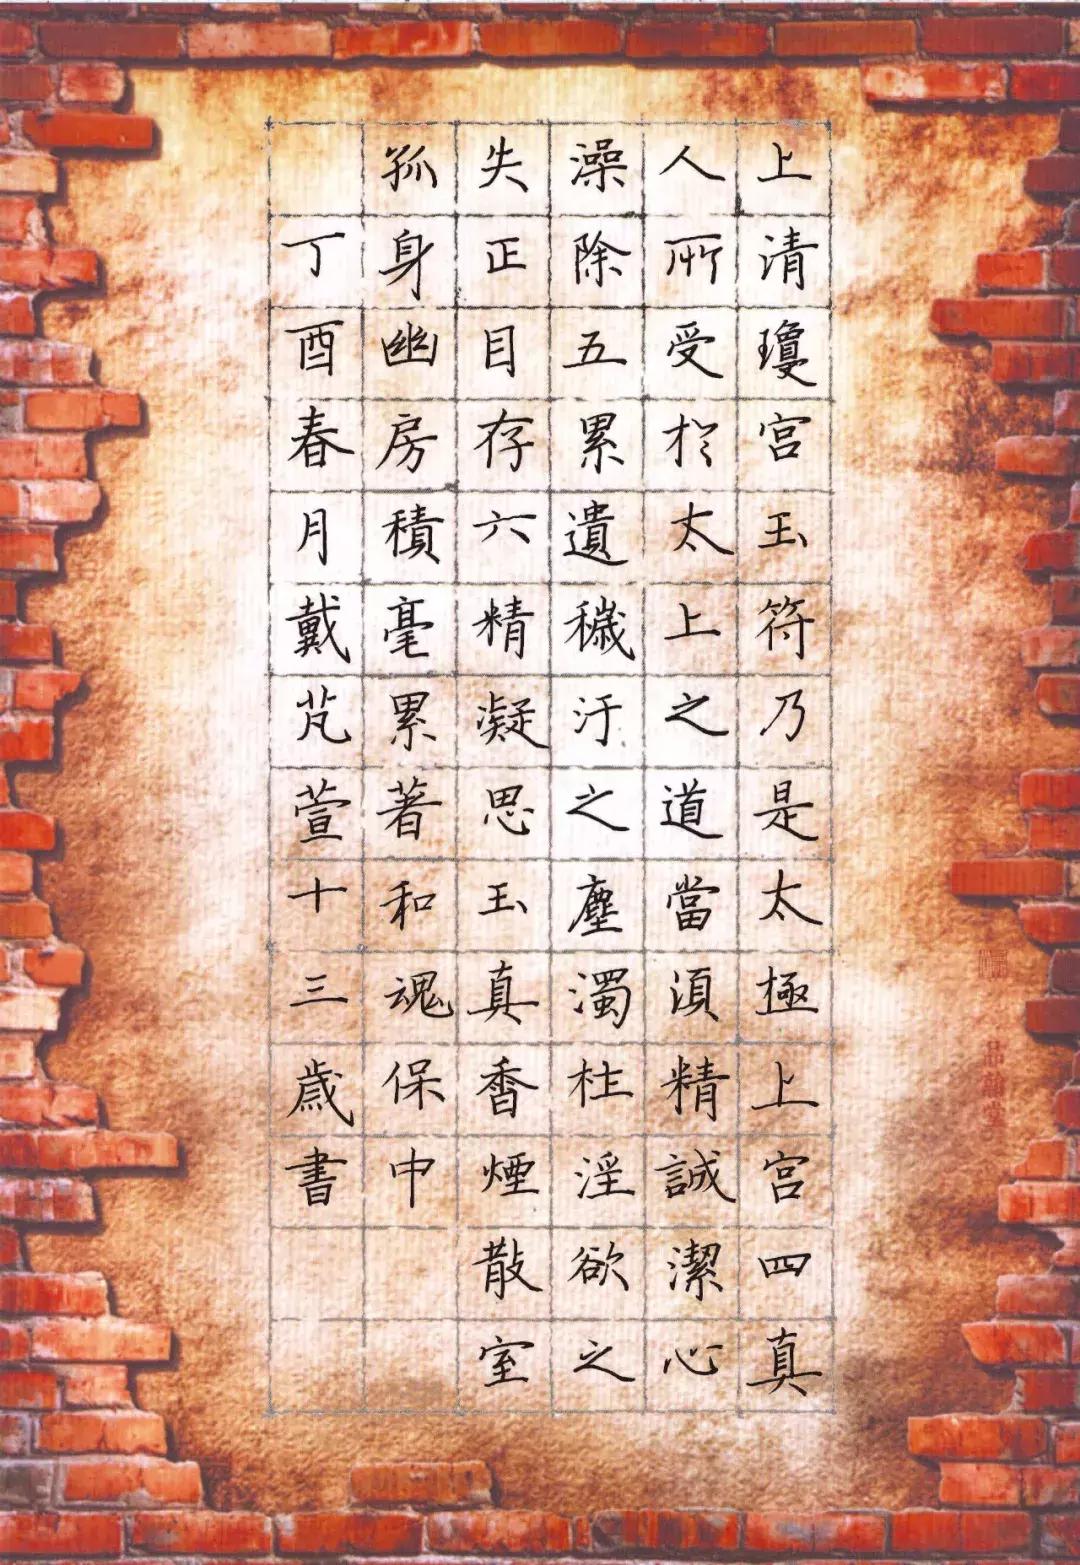 上清瓊宮玉符乃是太極上宮四真
人所受於太上之道當須精誠潔心
澡除五累遺穢汙之塵濁杜淫欲之
失正目存六精凝思玉真香煙散室
孤身幽房積毫累著和魂保中
丁酉春月戴芃萱十三歲書
品翰堂